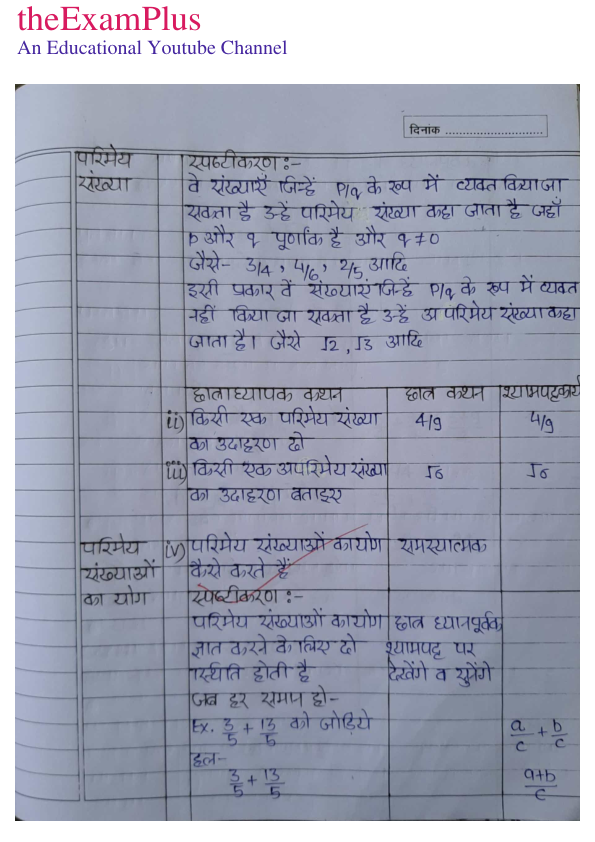 theExamPlus
An Educational Youtube Channel
दिनांक ............................
परिमेय संख्या
स्पष्टीकरण :-
वे संख्याएँ जिन्हें P/q के रूप में व्यक्त किया जा
सकता है उन्हें परिमेय संख्या कहा जाता है जहाँ
p और q पूर्णांक है और q ≠ 0
जैसे- 3/4 , 4/6 , 2/5 आदि
इसी प्रकार वे संख्याएं जिन्हें P/q के रूप में व्यक्त
नहीं किया जा सकता है उन्हें अपरिमेय संख्या कहा
जाता है। जैसे √2 , √3 आदि
छात्राध्यापक कथन छात्र कथन श्यामपट्टकार्य
ii) किसी एक परिमेय संख्या 4/9 4/9
का उदाहरण दो
iii) किसी एक अपरिमेय संख्या √6 √6
का उदाहरण बताइए
परिमेय iv) परिमेय संख्याओं का योग समस्यात्मक
संख्याओं कैसे करते हैं
का योग स्पष्टीकरण :-
परिमेय संख्याओं का योग छात्र ध्यानपूर्वक
ज्ञात करने के लिए दो श्यामपट्ट पर
स्थिति होती है देखेंगे व सुनेंगे
जब हर समान हो-
Ex. 3/5 + 13/5 को जोड़िये a/c + b/c
हल-
3/5 + 13/5 a+b/c